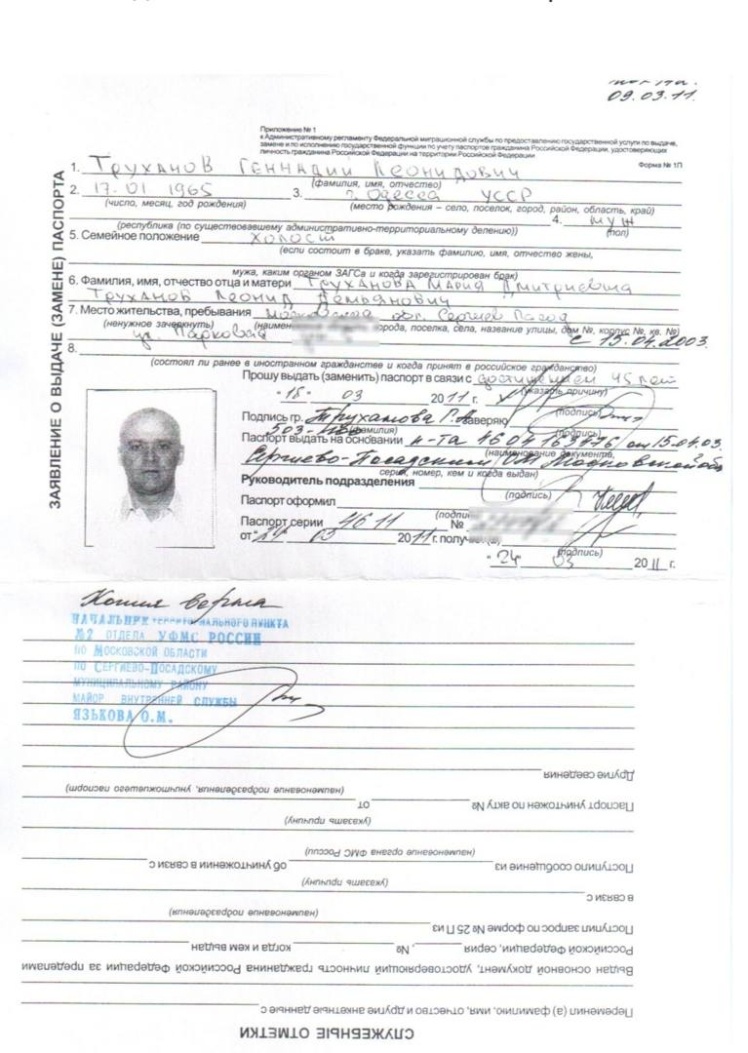 09.03.11.
Приложение № 1
к Административному регламенту Федеральной миграционной службы по предоставлению государственной услуги по выдаче,
замене и по исполнению государственной функции по учету паспортов гражданина Российской Федерации, удостоверяющих
личность гражданина Российской Федерации на территории Российской Федерации
Форма № 1П
ЗАЯВЛЕНИЕ О ВЫДАЧЕ (ЗАМЕНЕ) ПАСПОРТА
1. Труханов Геннадий Леонидович
(фамилия, имя, отчество)
2. 17.01 1965 3. г. Одесса УССР
(число, месяц, год рождения) (место рождения – село, поселок, город, район, область, край)
4. муж
(республика (по существовавшему административно-территориальному делению)) (пол)
5. Семейное положение холост
(если состоит в браке, указать фамилию, имя, отчество жены,
мужа, каким органом ЗАГСа и когда зарегистрирован брак)
6. Фамилия, имя, отчество отца и матери Труханова Мария Дмитриевна
Труханов Леонид Демьянович
7. Место жительства, пребывания Московская обл. Сергиев Посад
(ненужное зачеркнуть) города, поселка, села, название улицы, дом №, корпус №, кв. №)
ул. Парковая с 15.04.2003.
8.
(состоял ли ранее в иностранном гражданстве и когда принят в российское гражданство)
Прошу выдать (заменить) паспорт в связи с достижением 45 лет
(указать причину)
03 2011 г.
(подпись)
Подпись гр. Труханова Г. Л. заверяю
(фамилия) (подпись)
Паспорт выдать на основании п-та 46 04 163776 от 15.04.03.
(наименование документа,
Сергиево-Посадским Московской обл
серия, номер, кем и когда выдан)
Руководитель подразделения
(подпись)
Паспорт оформил
(подпись)
Паспорт серии 46 11 №
от "24" 03 2011 г. получил(а)
(подпись)
"24" 03 2011 г.
Копия верна
НАЧАЛЬНИК ТЕРРИТОРИАЛЬНОГО ПУНКТА
№2 ОТДЕЛА УФМС РОССИИ
ПО МОСКОВСКОЙ ОБЛАСТИ
ПО СЕРГИЕВО-ПОСАДСКОМУ
МУНИЦИПАЛЬНОМУ РАЙОНУ
МАЙОР ВНУТРЕННЕЙ СЛУЖБЫ
ЯЗЬКОВА О.М.
СЛУЖЕБНЫЕ ОТМЕТКИ
Переменил (а) фамилию, имя, отчество и другие анкетные данные с
Выдан основной документ, удостоверяющий личность гражданина Российской Федерации за пределами
Российской Федерации, серия , № , когда и кем выдан
Поступил запрос по форме № 25 П из
(наименование подразделения)
в связи с
(указать причину)
Поступило сообщение из об уничтожении в связи с
(наименование органа ФМС России)
(указать причину)
Паспорт уничтожен по акту № от
(наименование подразделения, уничтожившего паспорт)
Другие сведения